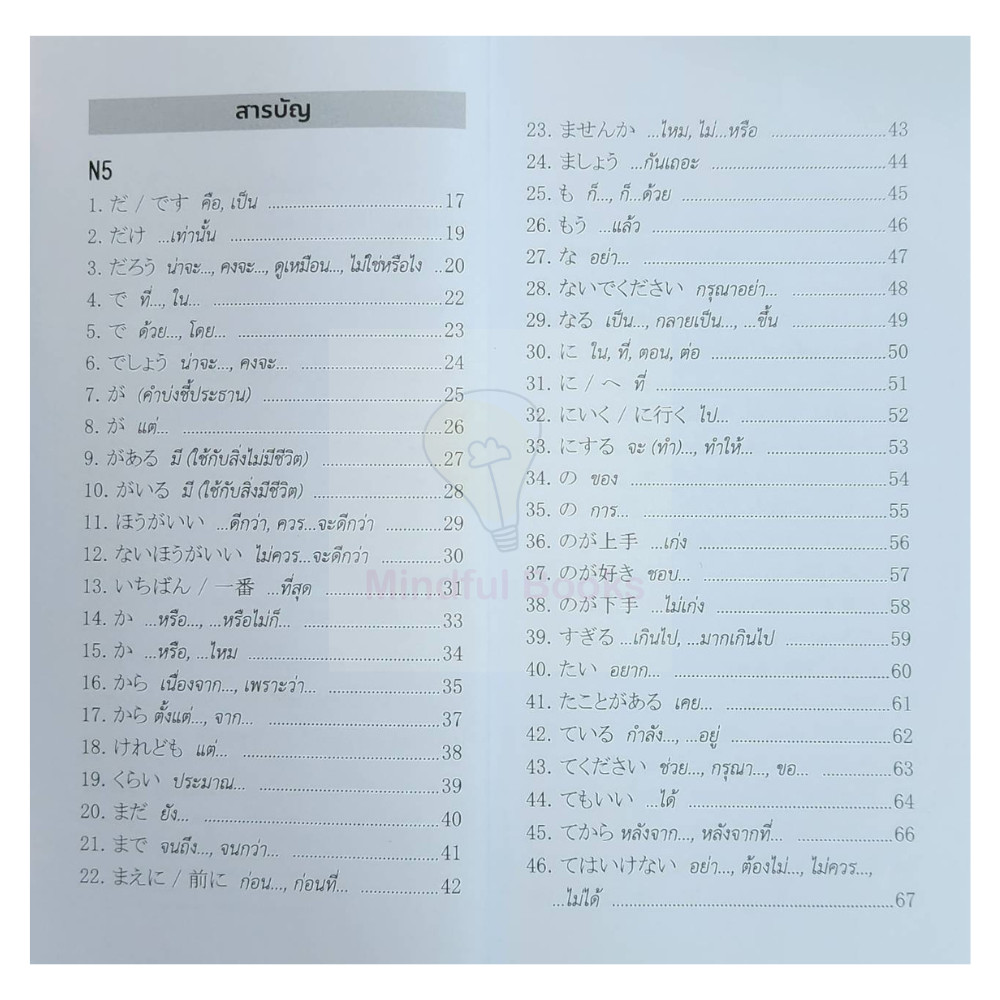 สารบัญ
N5
1. だ / です คือ, เป็น ........................................17
2. だけ ...เท่านั้น ................................................19
3. だろう น่าจะ..., คงจะ..., ดูเหมือน..., ไม่ใช่หรือไง ..20
4. で ที่..., ใน... ......................................................22
5. で ด้วย..., โดย... ................................................23
6. でしょう น่าจะ..., คงจะ... ..................................24
7. が (คำบ่งชี้ประธาน) ..........................................25
8. が แต่... ..............................................................26
9. がある มี (ใช้กับสิ่งไม่มีชีวิต) ...........................27
10. がいる มี (ใช้กับสิ่งมีชีวิต) ............................28
11. ほうがいい ...ดีกว่า, ควร...จะดีกว่า ............29
12. ないほうがいい ไม่ควร...จะดีกว่า ................30
13. いちばん / 一番 ...ที่สุด ...........................31
14. か ...หรือ..., ...หรือไม่ก็... ...............................33
15. か ...หรือ, ...ไหม ............................................34
16. から เนื่องจาก..., เพราะว่า... ..........................35
17. から ตั้งแต่..., จาก... ........................................37
18. けれども แต่... ................................................38
19. くらい ประมาณ... ..........................................39
20. まだ ยัง... .......................................................40
21. まで จนถึง..., จนกว่า... ..................................41
22. まえに / 前に ก่อน..., ก่อนที่... ..................42
23. ませんか ...ไหม, ไม่...หรือ ..........................43
24. ましょう ...กันเถอะ ........................................44
25. も ก็..., ก็...ด้วย ..............................................45
26. もう ...แล้ว ......................................................46
27. な อย่า... .........................................................47
28. ないでください กรุณาอย่า... .....................48
29. なる เป็น..., กลายเป็น..., ...ขึ้น .....................49
30. に ใน, ที่, ตอน, ต่อ .........................................50
31. に / へ ที่ ........................................................51
32. にいく / に行く ไป... ....................................52
33. にする จะ (ทำ)..., ทำให้... .............................53
34. の ของ .............................................................54
35. の การ... ..........................................................55
36. のが上手 ...เก่ง ..............................................56
37. のが好き ชอบ... .............................................57
38. のが下手 ...ไม่เก่ง .........................................58
39. すぎる ...เกินไป, ...มากเกินไป ........................59
40. たい อยาก... ...................................................60
41. たことがある เคย... ......................................61
42. ている กำลัง..., ...อยู่ .....................................62
43. てください ช่วย..., กรุณา..., ขอ... ..................63
44. てもいい ...ได้ .................................................64
45. てから หลังจาก..., หลังจากที่... .......................66
46. てはいけない อย่า..., ต้องไม่..., ไม่ควร...,
...ไม่ได้ ....................................................................67
Mindful Books